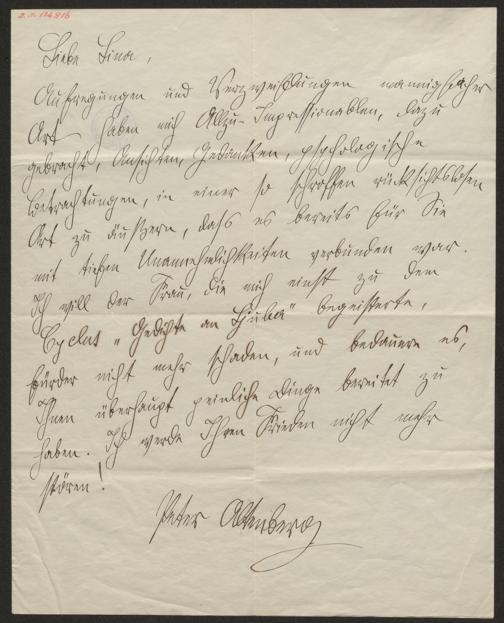 Liebe Lina,
Aufregungen und Verzweiflungen mannigfacher
Art haben mich Allzu-Impressionablen, dazu
gebracht, Ansichten, Gedanken, psychologische
Betrachtungen, in einer so schroffen rücksichtslosen
Art zu äußern, dass es bereits für Sie
mit tiefen Unannehmlichkeiten verbunden war.
Ich will der Frau, die mich einst zu dem
Cyclus „Gedichte an Ljuba" begeisterte,
fürder nicht mehr schaden, und bedauere es,
Ihnen überhaupt peinliche Dinge bereitet zu
haben. Ich werde Ihren Frieden nicht mehr
stören!
Peter Altenberg